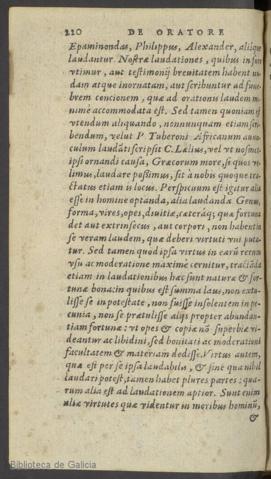 220 DE ORATORE
Epaminondas, Philippus, Alexander, aliique
laudantur. Nostræ laudationes, quibus in foro
vtimur, aut testimonij breuitatem habent nu-
dam atque inornatam, aut scribuntur ad fune-
brem concionem, quæ ad orationis laudem mi-
nime accommodata est. Sed tamen quoniam est
vtendum aliquando, nonnunquam etiam scri-
bendum, velut P. Tuberoni Africanum auun-
culum laudãti scripsit C. Lælius, vel vt nosmet-
ipsi ornandi causa, Græcorum more, si quos ve-
limus, laudare possimus, sit à nobis quoque tra-
ctatus etiam is locus. Perspicuum est igitur alia
esse in homine optanda, alia laudanda. Genus,
forma, vires, opes, diuitiæ, cæteráq; quæ fortuna
det aut extrinsecus, aut corpori, non habent in
se veram laudem, quæ deberi virtuti vni puta-
tur. Sed tamen quod ipsa virtus in earũ rerum
vsu ac moderatione maxime cernitur, tractãda
etiam in laudationibus hæc sunt naturæ & for-
tunæ bona: in quibus est summa laus, non extu-
lisse se in potestate, non fuisse insolentem in pe-
cunia, non se prætulisse alijs propter abundan-
tiam fortunæ: vt opes & copiæ nõ superbiæ vi-
deantur ac libidini, sed bonitati ac moderationi
facultatem & materiam dedisse. Virtus autem,
quæ est per se ipsa laudabilis, & sine qua nihil
laudari potest, tamen habet plures partes: qua-
rum alia est ad laudationem aptior. Sunt enim
aliæ virtutes quæ videntur in moribus hominũ,
&
Biblioteca de Galicia